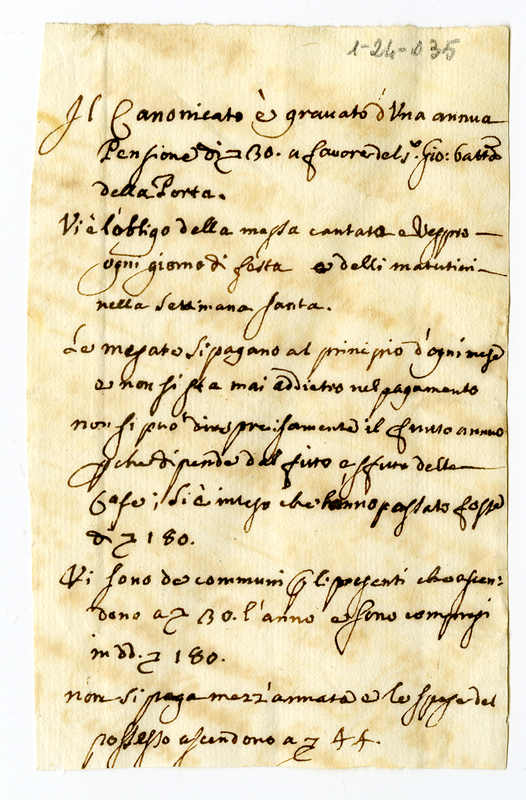 1-24-035
Il Canonicato è gravato d'Una annua
Pensione di 30. a favore del S.r Gio: Batt.a
della Porta.
Vi è l'obligo della messa cantata e Vespro
ogni giorno di festa e delli matutini
nella Settimana Santa.
Le mesate si pagano al principio d'ogni mese
e non si sta mai addietro nel pagamento
non si puo' dire precisamente il frutto annuo
che dipende dal fitto e sfitto delle
Case; si è inteso che l'anno passato fosse
di 180.
Vi sono de communi li presenti che ascen:
dono a 30. l'anno e sono compresi
in dd. 180.
non si paga mezz'annata e le spese del
possesso ascendono a 44.